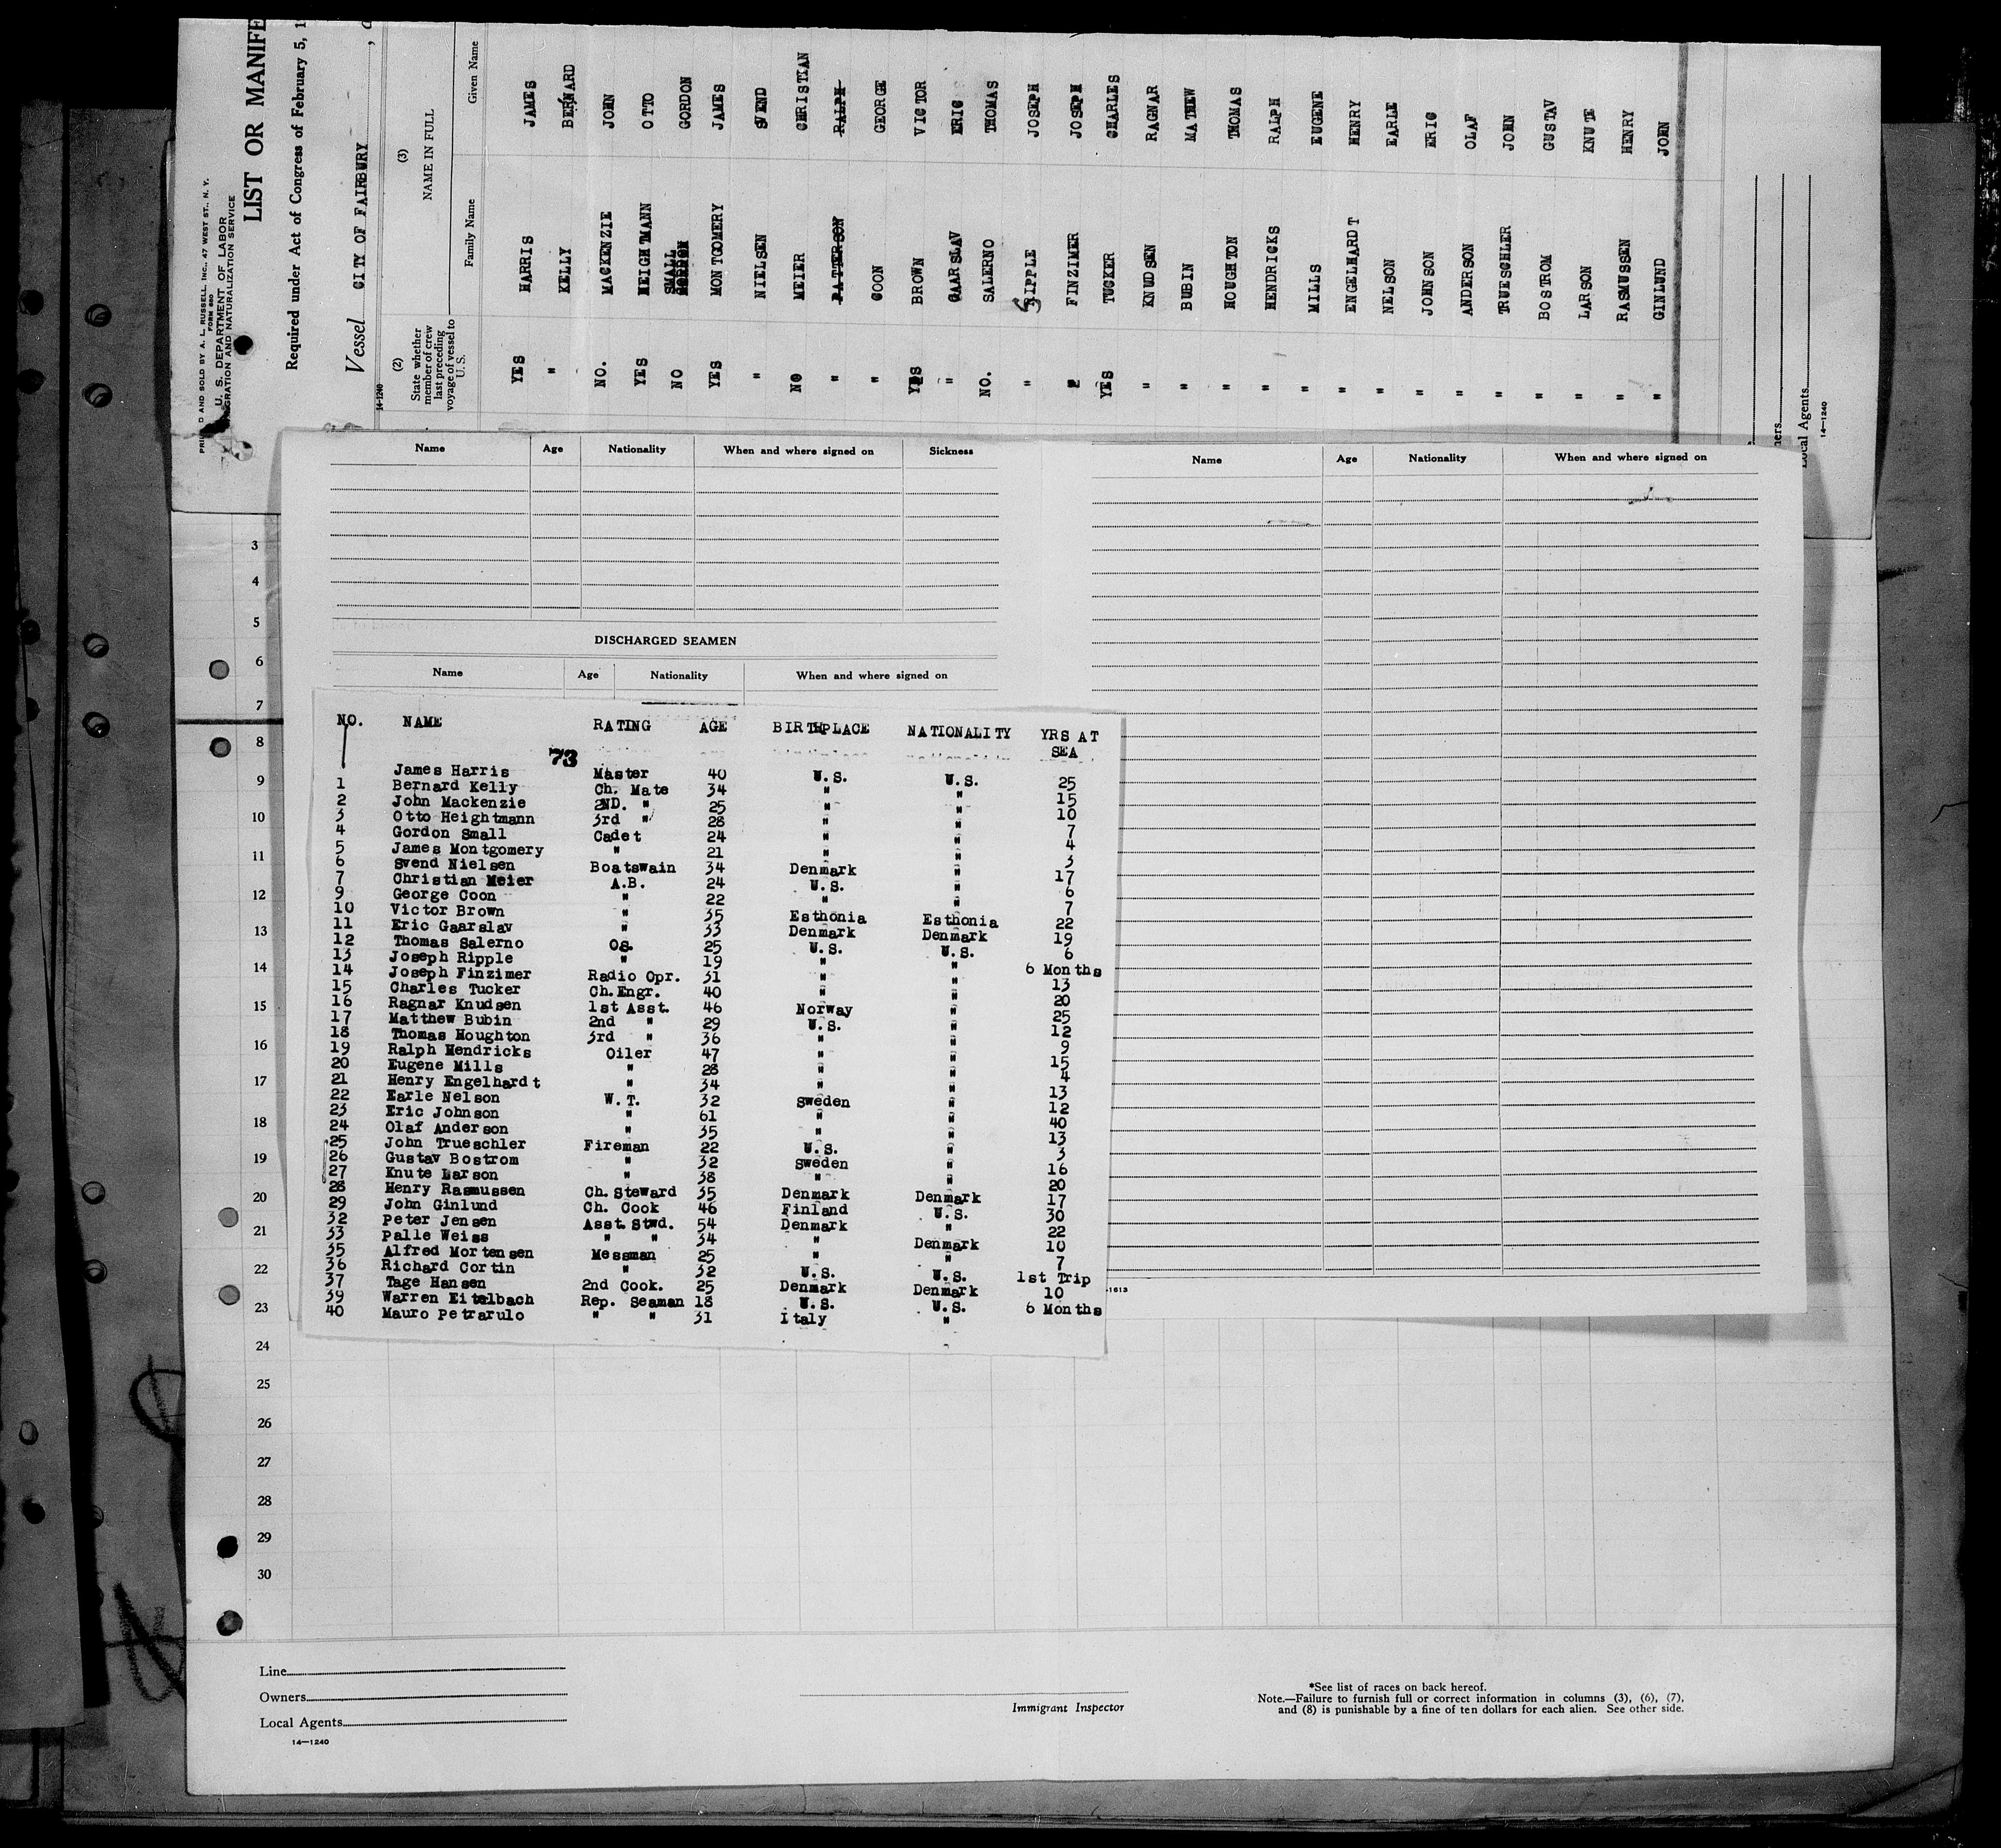 PRINTED AND SOLD BY A. L. RUSSELL, INC., 47 WEST ST., N. Y.
FORM 680
U. S. DEPARTMENT OF LABOR
IMMIGRATION AND NATURALIZATION SERVICE
LIST OR MANIFE
Required under Act of Congress of February 5, 1
Vessel CITY OF FAIRBURY ,
14-1240
(2) (3)
State whether member of crew last preceding voyage of vessel to U. S. NAME IN FULL
Family Name Given Name
YES HARRIS JAMES
" KELLY BERNARD
NO. MACKENZIE JOHN
YES HEIGHTMANN OTTO
NO SMALL GORDON GORDON
YES MONTGOMERY JAMES
" NIELSEN SVEND
NO MEIER CHRISTIAN
" PATTERSON RALPH
" COON GEORGE
YES BROWN VICTOR
" GAARSLAV ERIC
NO. SALERNO THOMAS
" RIPPLE JOSEPH
" FINZIMER JOSEPH
YES TUCKER CHARLES
" KNUDSEN RAGNAR
" BUBIN MATHEW
" HOUGHTON THOMAS
" HENDRICKS RALPH
" MILLS EUGENE
" ENGELHARDT HENRY
" NELSON EARLE
" JOHNSON ERIC
" ANDERSON OLAF
" TRUESCHLER JOHN
" BOSTROM GUSTAV
" LARSON KNUTE
" RASMUSSEN HENRY
" GINLUND JOHN
ners
Local Agents
14-1240
Name Age Nationality When and where signed on Sickness
Name Age Nationality When and where signed on
DISCHARGED SEAMEN
Name Age Nationality When and where signed on
NO. NAME RATING AGE BIRTHPLACE NATIONALITY YRS AT SEA
73
James Harris Master 40 U.S. U.S. 25
1 Bernard Kelly Ch. Mate 34 " " 15
2 John Mackenzie 2ND. " 25 " " 10
3 Otto Heightmann 3rd " 28 " " 7
4 Gordon Small Cadet 24 " " 4
5 James Montgomery " 21 " " 3
6 Svend Nielsen Boatswain 34 Denmark " 17
7 Christian Meier A.B. 24 U.S. " 6
9 George Coon " 22 " " 7
10 Victor Brown " 35 Esthonia Esthonia 22
11 Eric Gaarslav " 33 Denmark Denmark 19
12 Thomas Salerno OS. 25 U.S. U.S. 6
13 Joseph Ripple " 19 " " 6 Months
14 Joseph Finzimer Radio Opr. 31 " " 13
15 Charles Tucker Ch.Engr. 40 " " 20
16 Ragnar Knudsen 1st Asst. 46 Norway " 25
17 Matthew Bubin 2nd " 29 U.S. " 12
18 Thomas Houghton 3rd " 36 " " 9
19 Ralph Hendricks Oiler 47 " " 15
20 Eugene Mills " 28 " " 4
21 Henry Engelhardt " 34 " " 13
22 Earle Nelson W.T. 32 Sweden " 12
23 Eric Johnson " 61 " " 40
24 Olaf Anderson " 35 " " 13
25 John Trueschler Fireman 22 U.S. " 3
26 Gustav Bostrom " 32 Sweden " 16
27 Knute Larson " 38 " " 20
28 Henry Rasmussen Ch. Steward 35 Denmark Denmark 17
29 John Ginlund Ch. Cook 46 Finland U.S. 30
32 Peter Jensen Asst.Stwd. 54 Denmark " 22
33 Palle Weiss " " 34 " Denmark 10
35 Alfred Mortensen Messman 25 " " 7
36 Richard Cortin " 32 U.S. U.S. 1st Trip
37 Tage Hansen 2nd Cook. 25 Denmark Denmark 10
39 Warren Eitelbach Rep. Seaman 18 U.S. U.S. 6 Months
40 Mauro Petrarulo " " 31 Italy "
-1613
3
4
5
6
7
8
9
10
11
12
13
14
15
16
17
18
19
20
21
22
23
24
25
26
27
28
29
30
Line
Owners
Local Agents
14—1240
Immigrant Inspector
*See list of races on back hereof.
Note.—Failure to furnish full or correct information in columns (3), (6), (7),
and (8) is punishable by a fine of ten dollars for each alien. See other side.